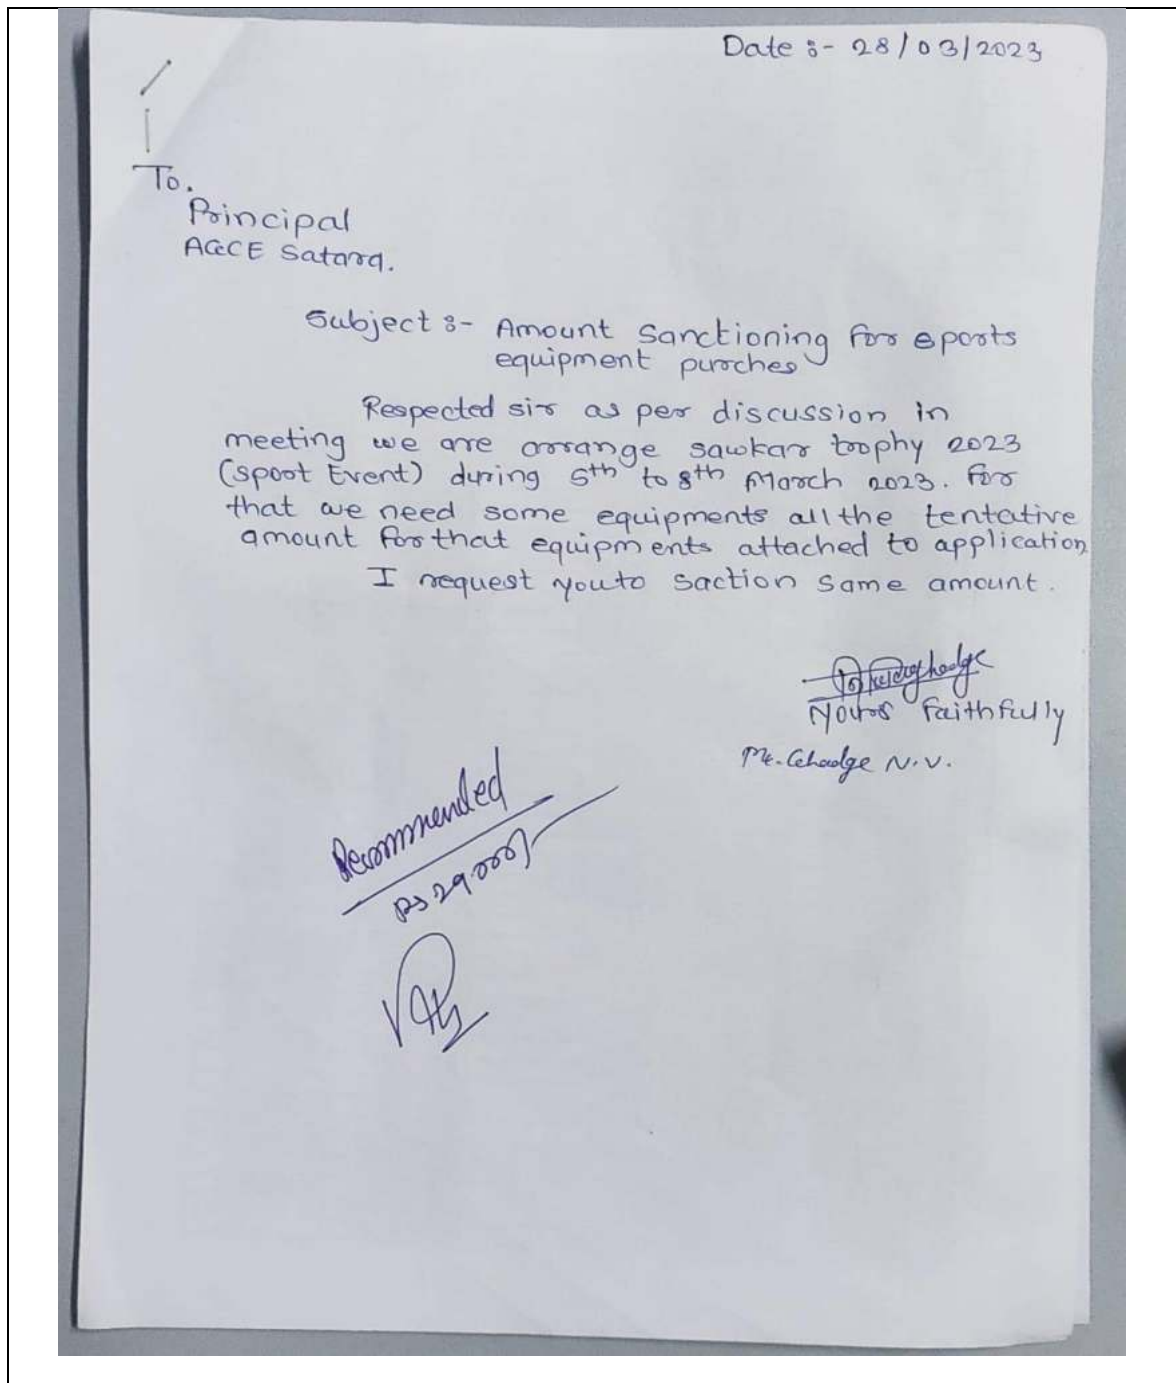 Date :- 28/03/2023
To.
Principal
AGCE Satara.
Subject :- Amount Sanctioning for sports
equipment purches
Respected sir as per discussion in
meeting we are arrange sawkar trophy 2023
(sport Event) during 5th to 8th March 2023. for
that we need some equipments all the tentative
amount for that equipments attached to application
I request you to saction same amount.
Yours faithfully
Mr. Ghadge N.V.
Recommended
Rs 29000/-